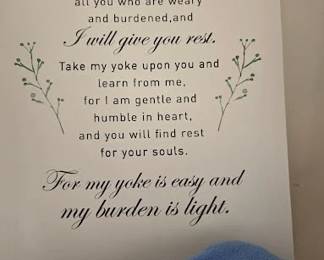 all you who are weary
and burdened,and
I will give you rest.
Take my yoke upon you and
learn from me,
for I am gentle and
humble in heart,
and you will find rest
for your souls.
For my yoke is easy and
my burden is light.